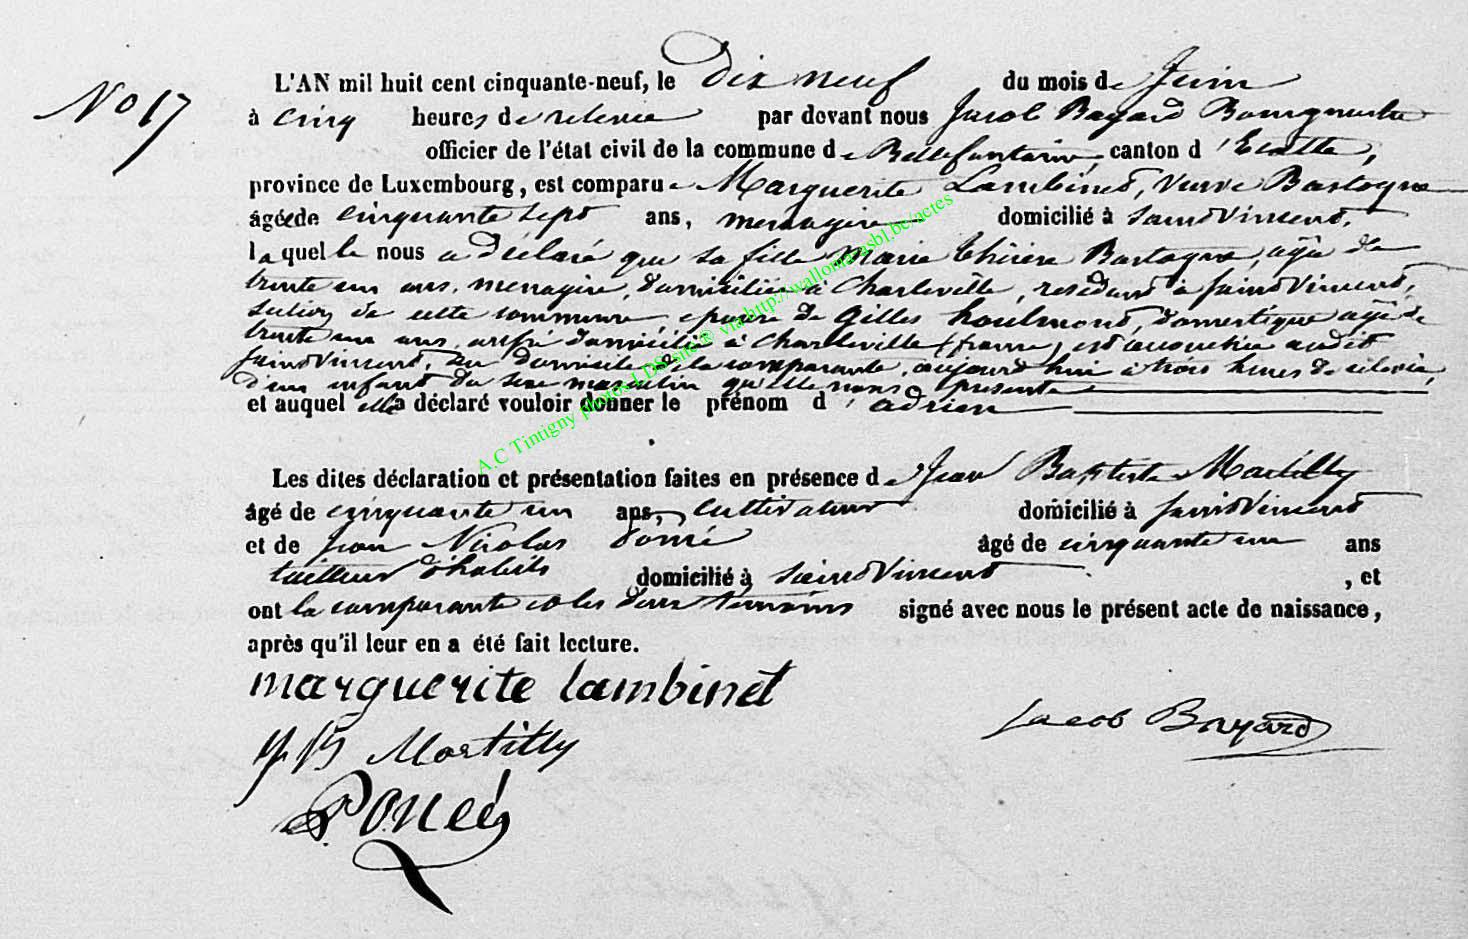 No 17
L'AN mil huit cent cinquante-neuf, le Dix neuf du mois de Juin
à cinq heures de relevée par devant nous Jacob Bayard Bourgmestre
officier de l'état civil de la commune de Bellefontaine, canton d'Etalle,
province de Luxembourg, est comparue Marguerite Lambinet, veuve Bastogne
âgée de cinquante sept ans, menagère domicilié à Saint Vincent,
laquelle nous a déclaré que sa fille Marie Thérèse Bastogne, agée de
trente un ans, menagère, domiciliée à Charleville, residant à Saint Vincent,
section de cette commune, epouse de Gilles houlmont, domestique agé de
trente un ans, domicilié à Charleville (france) est accouchée audit
Saint Vincent, au domicile de la comparante, aujourd'hui à trois heures de relevée,
d'un enfant du sexe masculin qu'elle nous presente
et auquel elle a déclaré vouloir donner le prénom d'adrien
Les dites déclaration et présentation faites en présence de Jean Baptiste Martilly
âgé de cinquante un ans, cultivateur domicilié à Saint Vincent
et de Jean Nicolas Poncé âgé de cinquante un ans
tailleur d'habits domicilié à Saint Vincent, et
ont la comparante et les deux temoins signé avec nous le présent acte de naissance,
après qu'il leur en a été fait lecture.
marguerite lambinet
Jacob Bayard
J B Martilly
Poncé
A.C Tintigny photos LDS site © via http://wallonia-asbl.be/actes